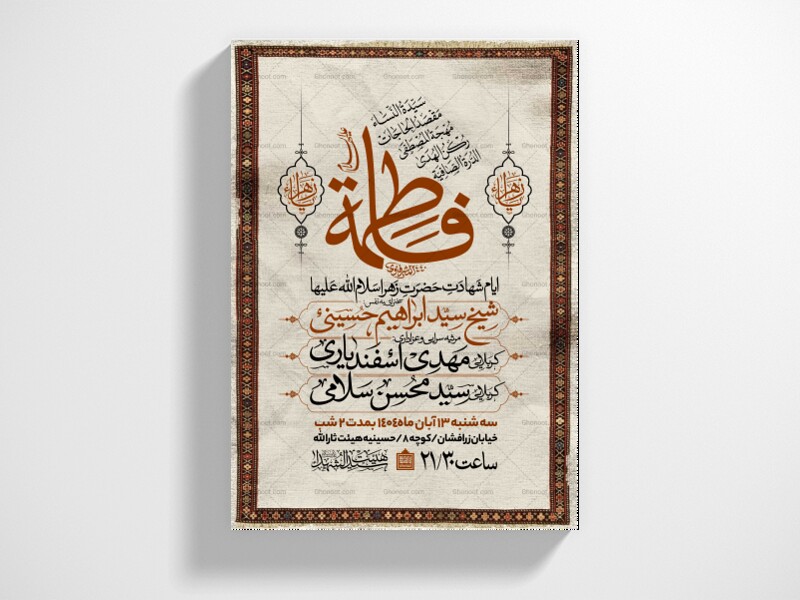 سیدة النساء
مقصد الحاجات
مهجة المصطفی
رکن الهدی
الدرة الصافیة
فاطمة
زهراء
زهراء
ایام شهادت حضرت زهرا سلام الله علیها
سخنرانی به نفس:
شیخ سید ابراهیم حسینی
مرثیه سرایی و عزاداری:
کربلایی مهدی اسفندیاری
کربلایی سید محسن سلامی
سه شنبه ۱۳ آبان ماه ۱۴۰۴ بمدت ۲ شب
خیابان زرافشان / کوچه ۸ / حسینیه هیئت ثارالله
ساعت ۲۱/۳۰
هیئت سیدالشهدا
Ghonoot.com